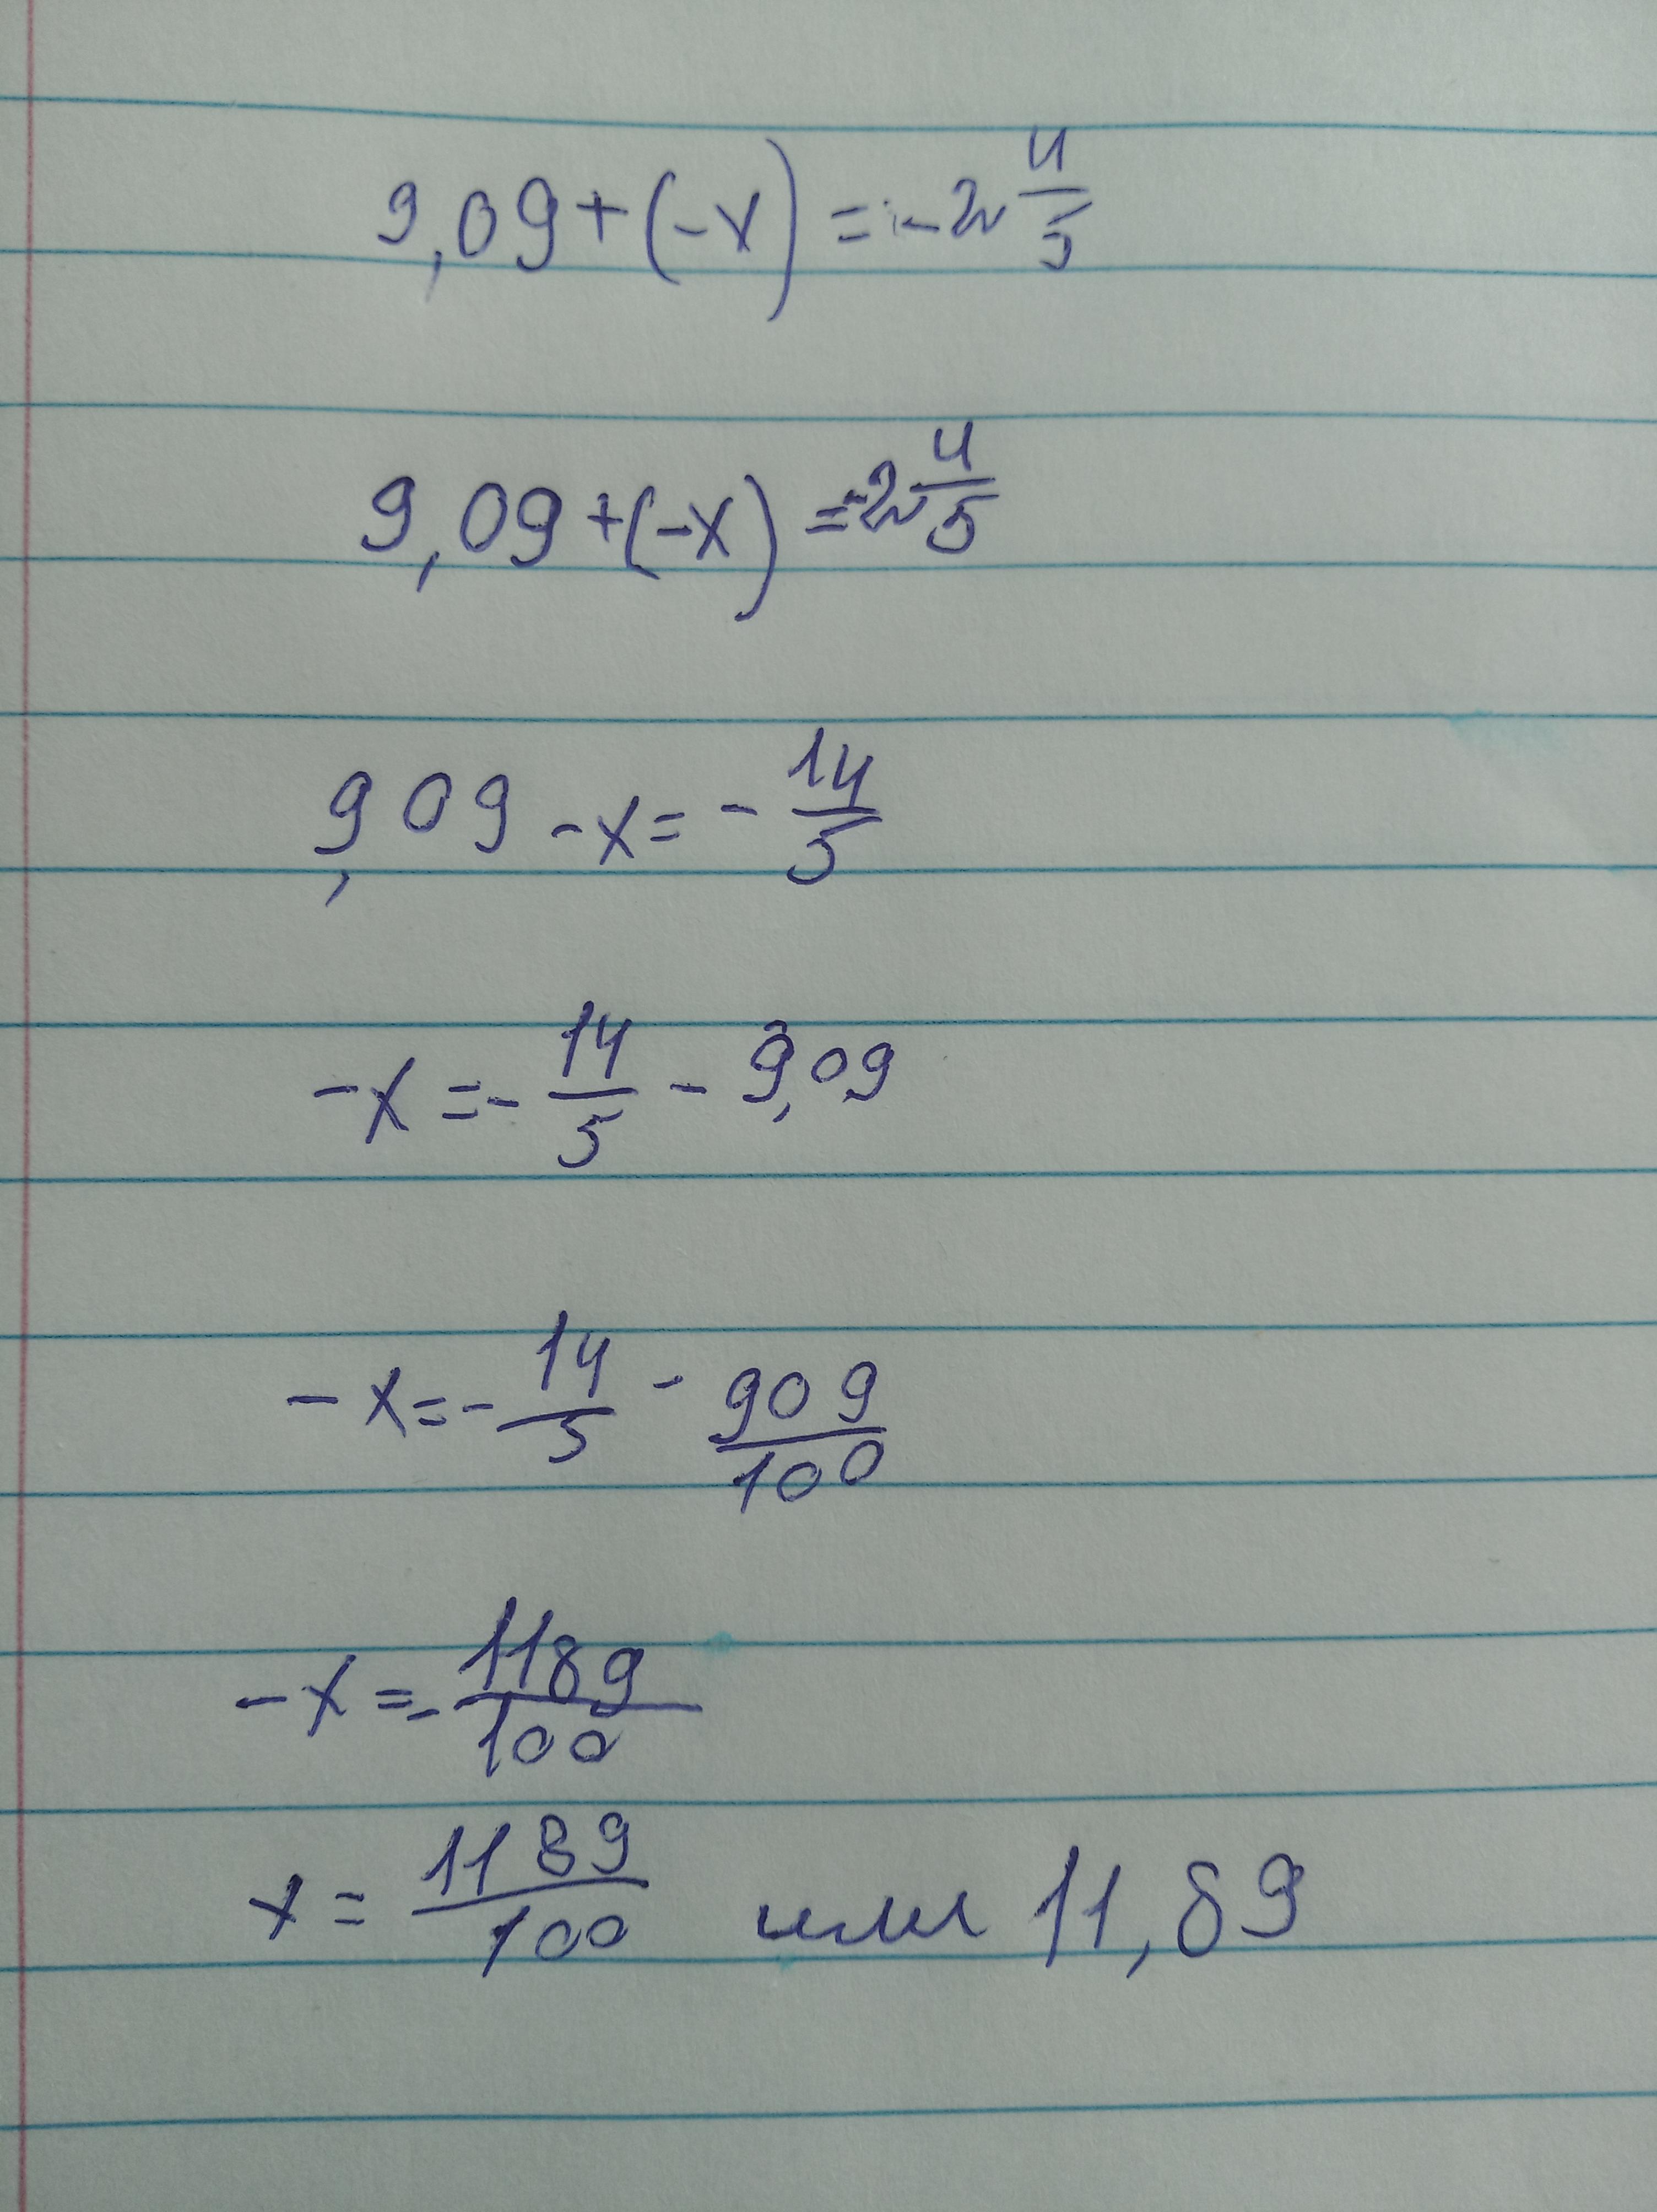 9,09+(-x)=-2 4/5
9,09+(-x)=-2 4/5
9,09-x=-14/5
-x=-14/5-9,09
-x=-14/5-909/100
-x=-1189/100
x=1189/100 или 11,89